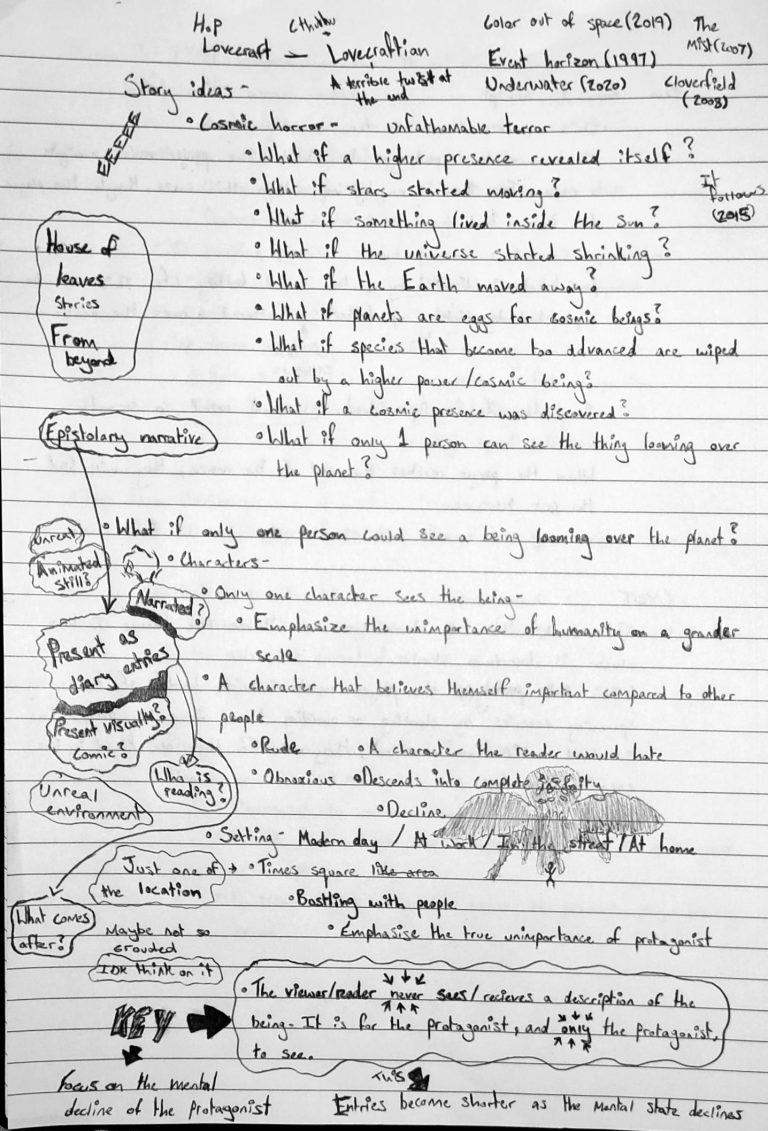 H.P Lovecraft – Cthulhu Lovecraftian
A terrible twist at
the end
Color out of space (2019)
Event horizon (1997)
Underwater (2020)
The
Mist (2007)
Cloverfield
(2008)
Story ideas -
EEEEE
• Cosmic horror - unfathomable terror
• What if a higher presence revealed itself?
• What if stars started moving?
It
follows
(2015)
• What if something lived inside the sun?
• What if the universe started shrinking?
• What if the Earth moved away?
• What if planets are eggs for cosmic beings?
• What if species that become too advanced are wiped
out by a higher power/cosmic being?
• What if a cosmic presence was discovered?
• What if only 1 person can see the thing looming over
the planet?
House of
leaves
Stories
From
beyond
Epistolary narrative
• What if only one person could see a being looming over the planet?
Unreal
Animated
Still?
• Characters-
Narrated?
• Only one character sees the being-
• Emphasize the unimportance of humanity on a grander
scale
Present as
diary entries
• A character that believes themself important compared to other
people
Present visually?
Comic?
• Rude • A character the reader would hate
• Obnoxious • Descends into complete insanity
• Decline
Who is
reading?
Unreal
environment
• Setting - Modern day / At work / In the street / At home
Just one of
the location
• Times square like area
• Bustling with people
• Emphasise the true unimportance of protagonist
What comes
after?
Maybe not so
crouded
IDK think on it
KEY
• The viewer/reader never sees/recieves a description of the
being - It is for the protagonist, and only the protagonist,
to see.
Focus on the mental
decline of the protagonist
This
Entries become shorter as the mental state declines